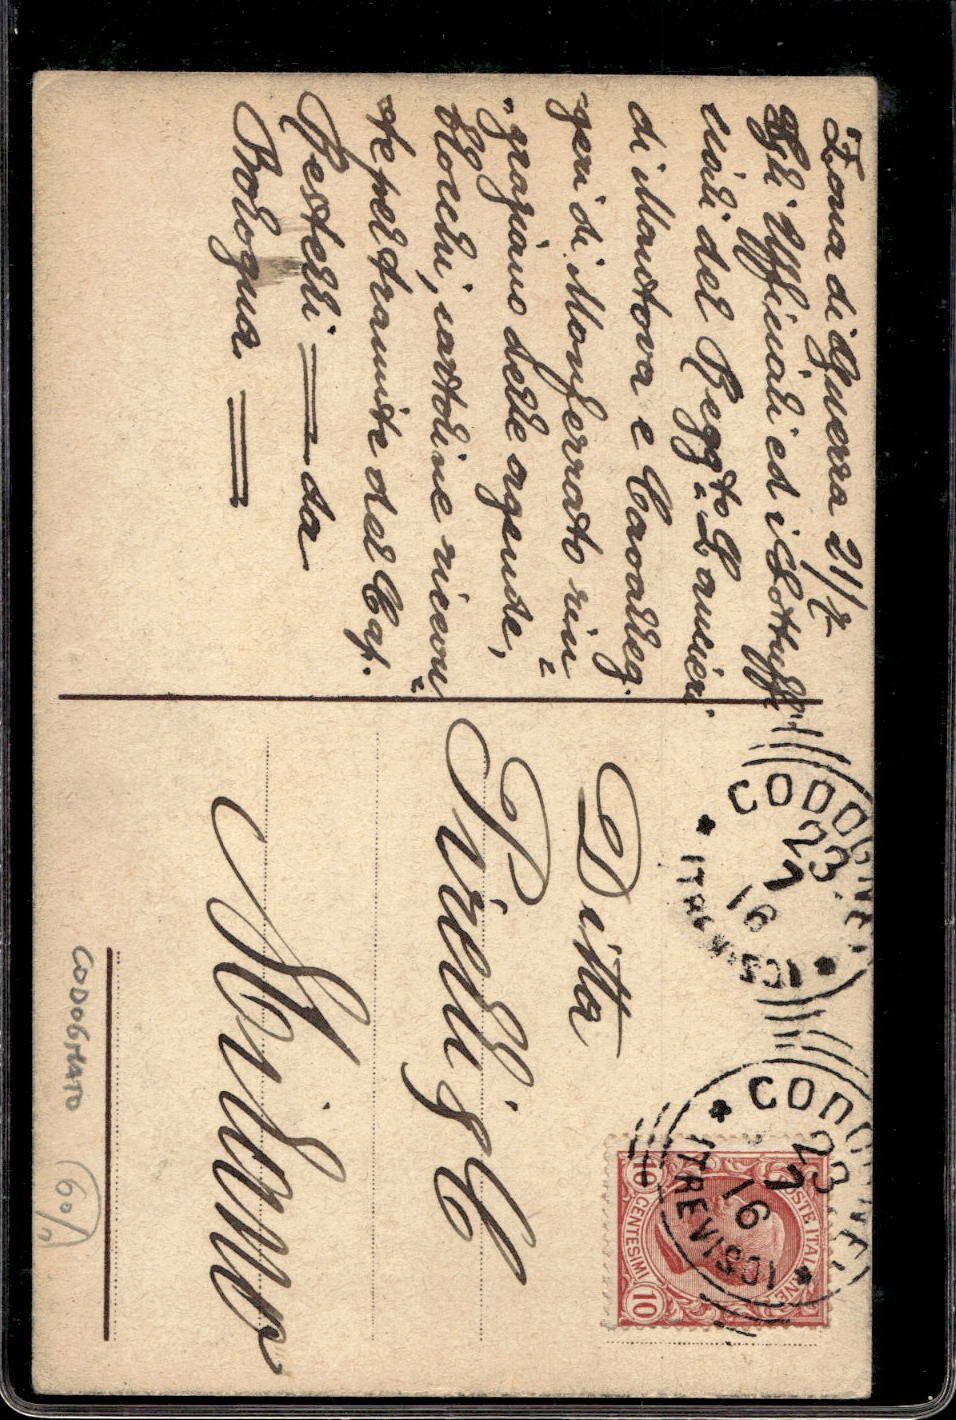 Zona di Guerra 21/7
Gli Ufficiali ed i Sottuff
ciali del Regg-to Lancieri
di Mantova e Cavalleg.
geri di Monferrato rin=
"graziano delle agende,
blocchi, cartoline ricevu=
te per tramite del Cap.
da
Bologna
Ditta
Pirelli & C
Milano
CODOGNE'
23
7
16
(TREVISO)
CODOGNE'
23
7
16
(TREVISO)
POSTE ITALIANE
10 CENTESIMI 10
CODOGNATO
60/